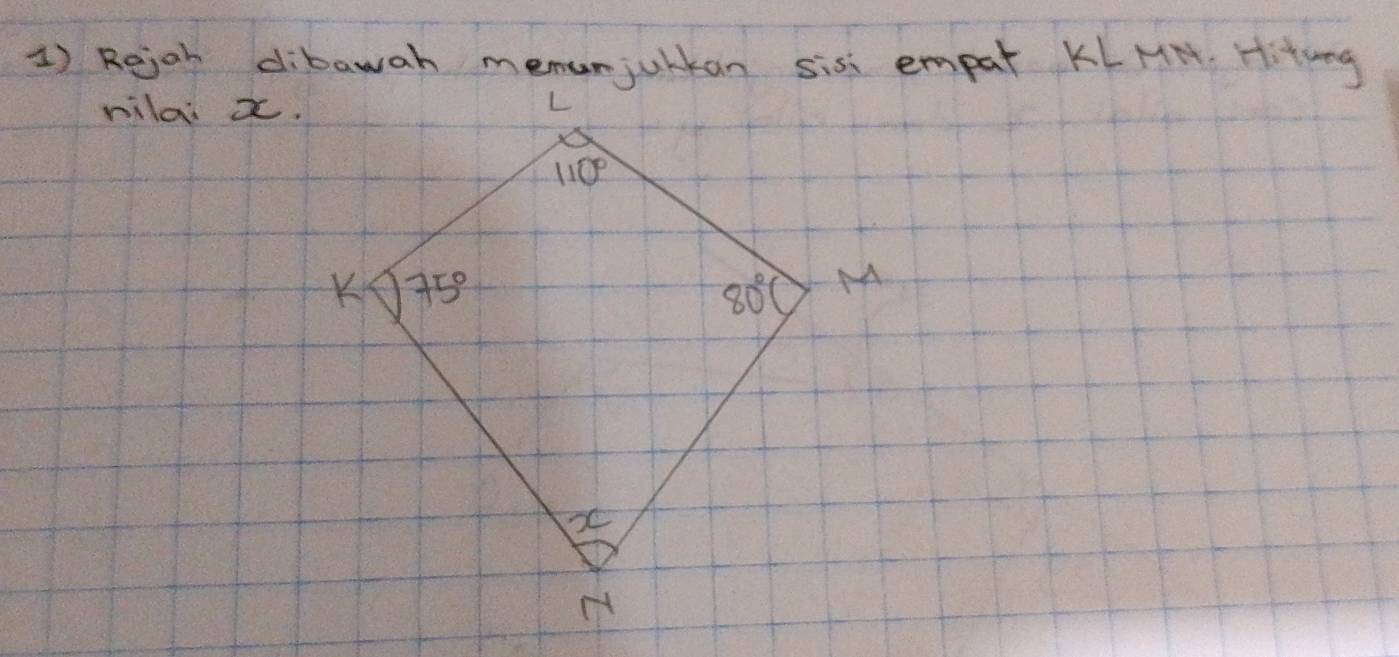 1) Rajah dibawah menunjukkan sisi empat KLMN. Hitung
nilai x.
L
110°
K 75°
80° M
x
N